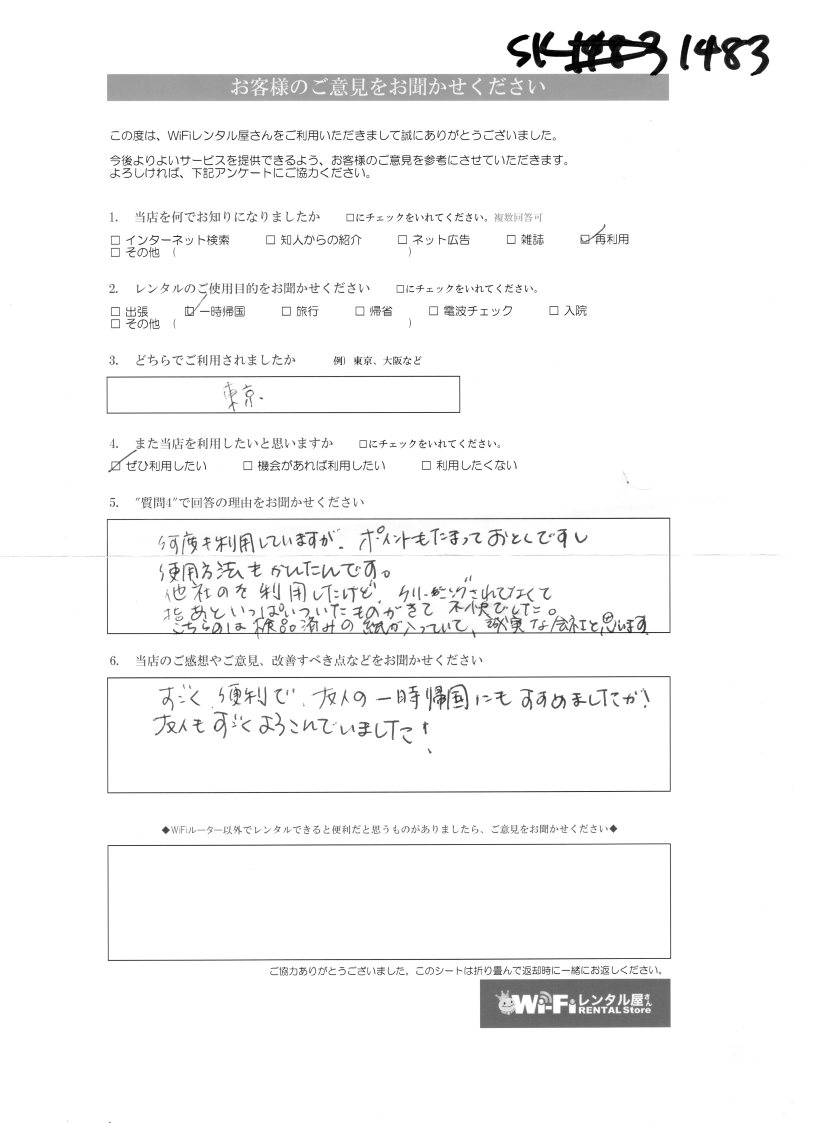 SK 1483
お客様のご意見をお聞かせください
この度は、WiFiレンタル屋さんをご利用いただきまして誠にありがとうございました。
今後よりよいサービスを提供できるよう、お客様のご意見を参考にさせていただきます。
よろしければ、下記アンケートにご協力ください。
1. 当店を何でお知りになりましたか □にチェックをいれてください。複数回答可
□ インターネット検索 □ 知人からの紹介 □ ネット広告 □ 雑誌 ☑ 再利用
□ その他 ( )
2. レンタルのご使用目的をお聞かせください □にチェックをいれてください。
□ 出張 ☑ 一時帰国 □ 旅行 □ 帰省 □ 電波チェック □ 入院
□ その他 ( )
3. どちらでご利用されましたか 例) 東京、大阪など
東京.
4. また当店を利用したいと思いますか □にチェックをいれてください。
☑ ぜひ利用したい □ 機会があれば利用したい □ 利用したくない
5. "質問4"で回答の理由をお聞かせください
何度も利用していますが、ポイントもたまっておとくですし
使用方法もかんたんです。
他社のを利用したけど、クリーニングされてなくて
指あといっぱいついたものがきて不快でした。
こちらのは検品済みの紙が入っていて、誠実な会社と思います
6. 当店のご感想やご意見、改善すべき点などをお聞かせください
すごく便利で、友人の一時帰国にもすすめましたが!
友人もすごくよろこんでいました!
◆WiFiルーター以外でレンタルできると便利だと思うものがありましたら、ご意見をお聞かせください◆
ご協力ありがとうございました。このシートは折り畳んで返却時に一緒にお返しください。
Wi-Fiレンタル屋さん
RENTAL Store